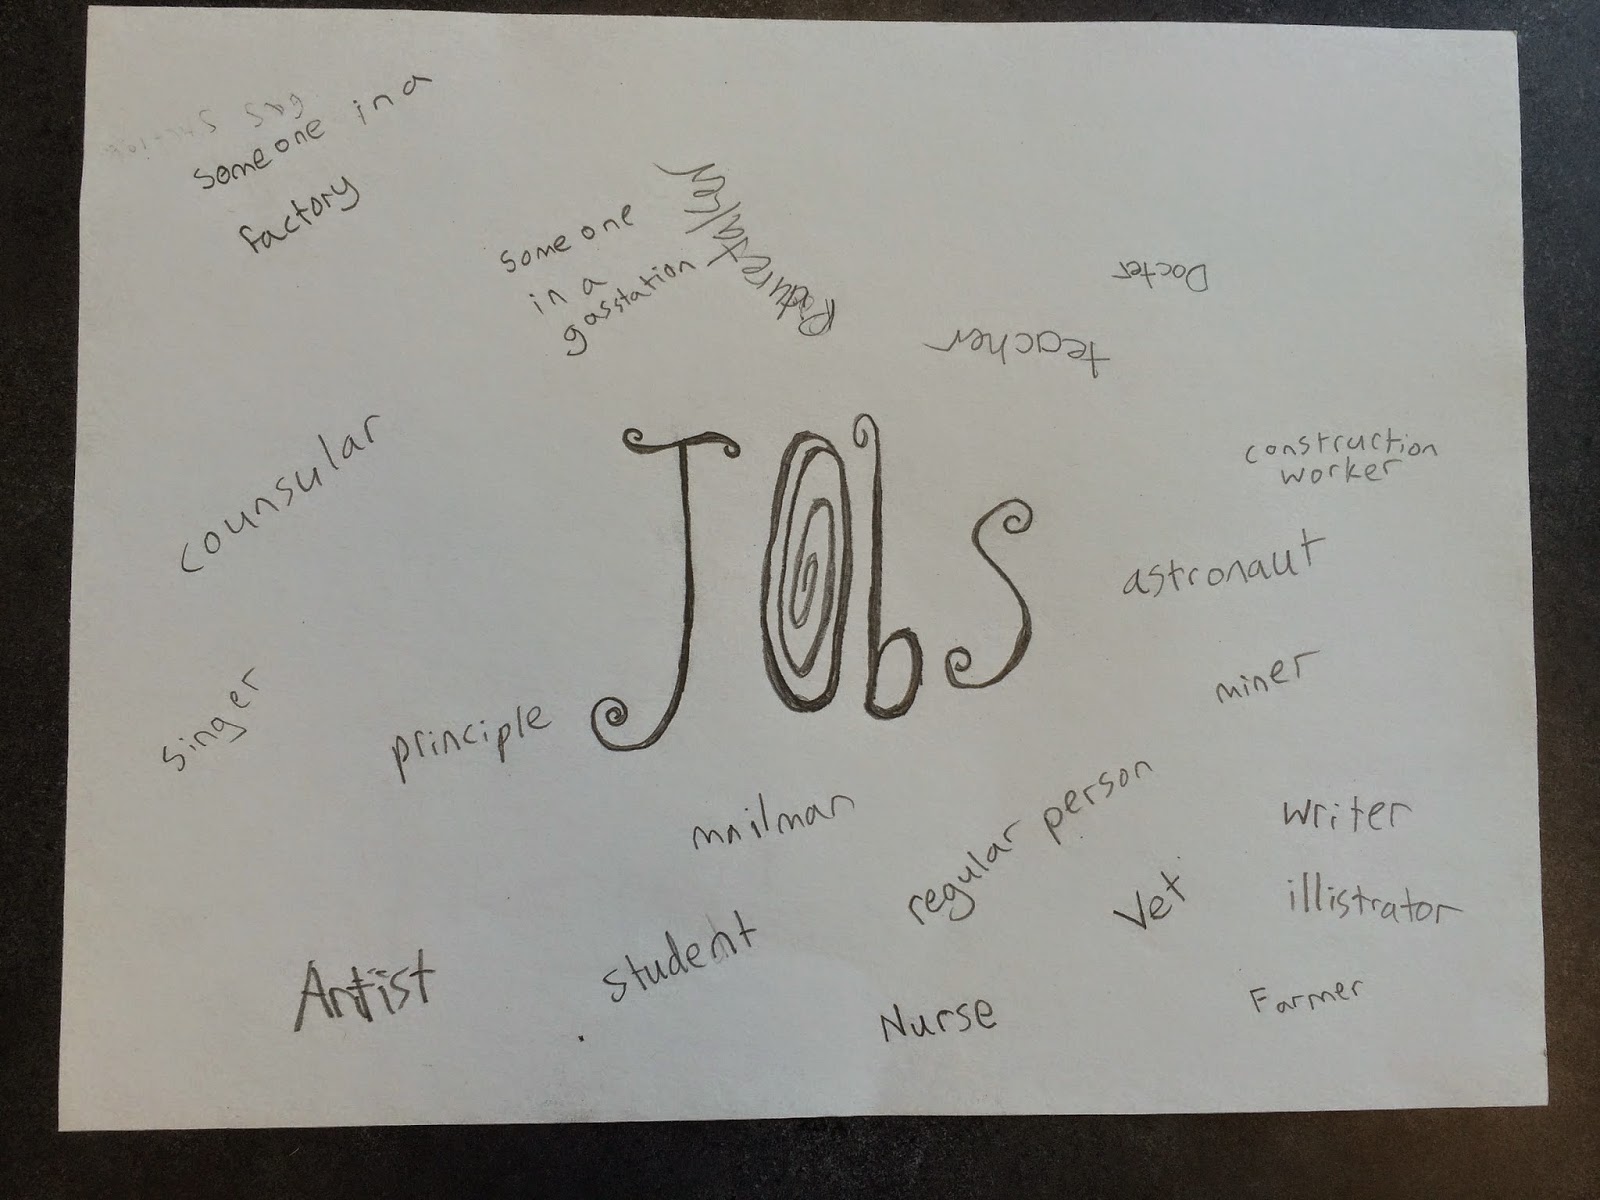 someone in a
factory
someone
in a
gasstation
Docter
teacher
Jobs
counsular
construction
worker
astronaut
singer
principle
miner
mailman
regular person
writer
Vet
illistrator
Artist
student
Nurse
Farmer